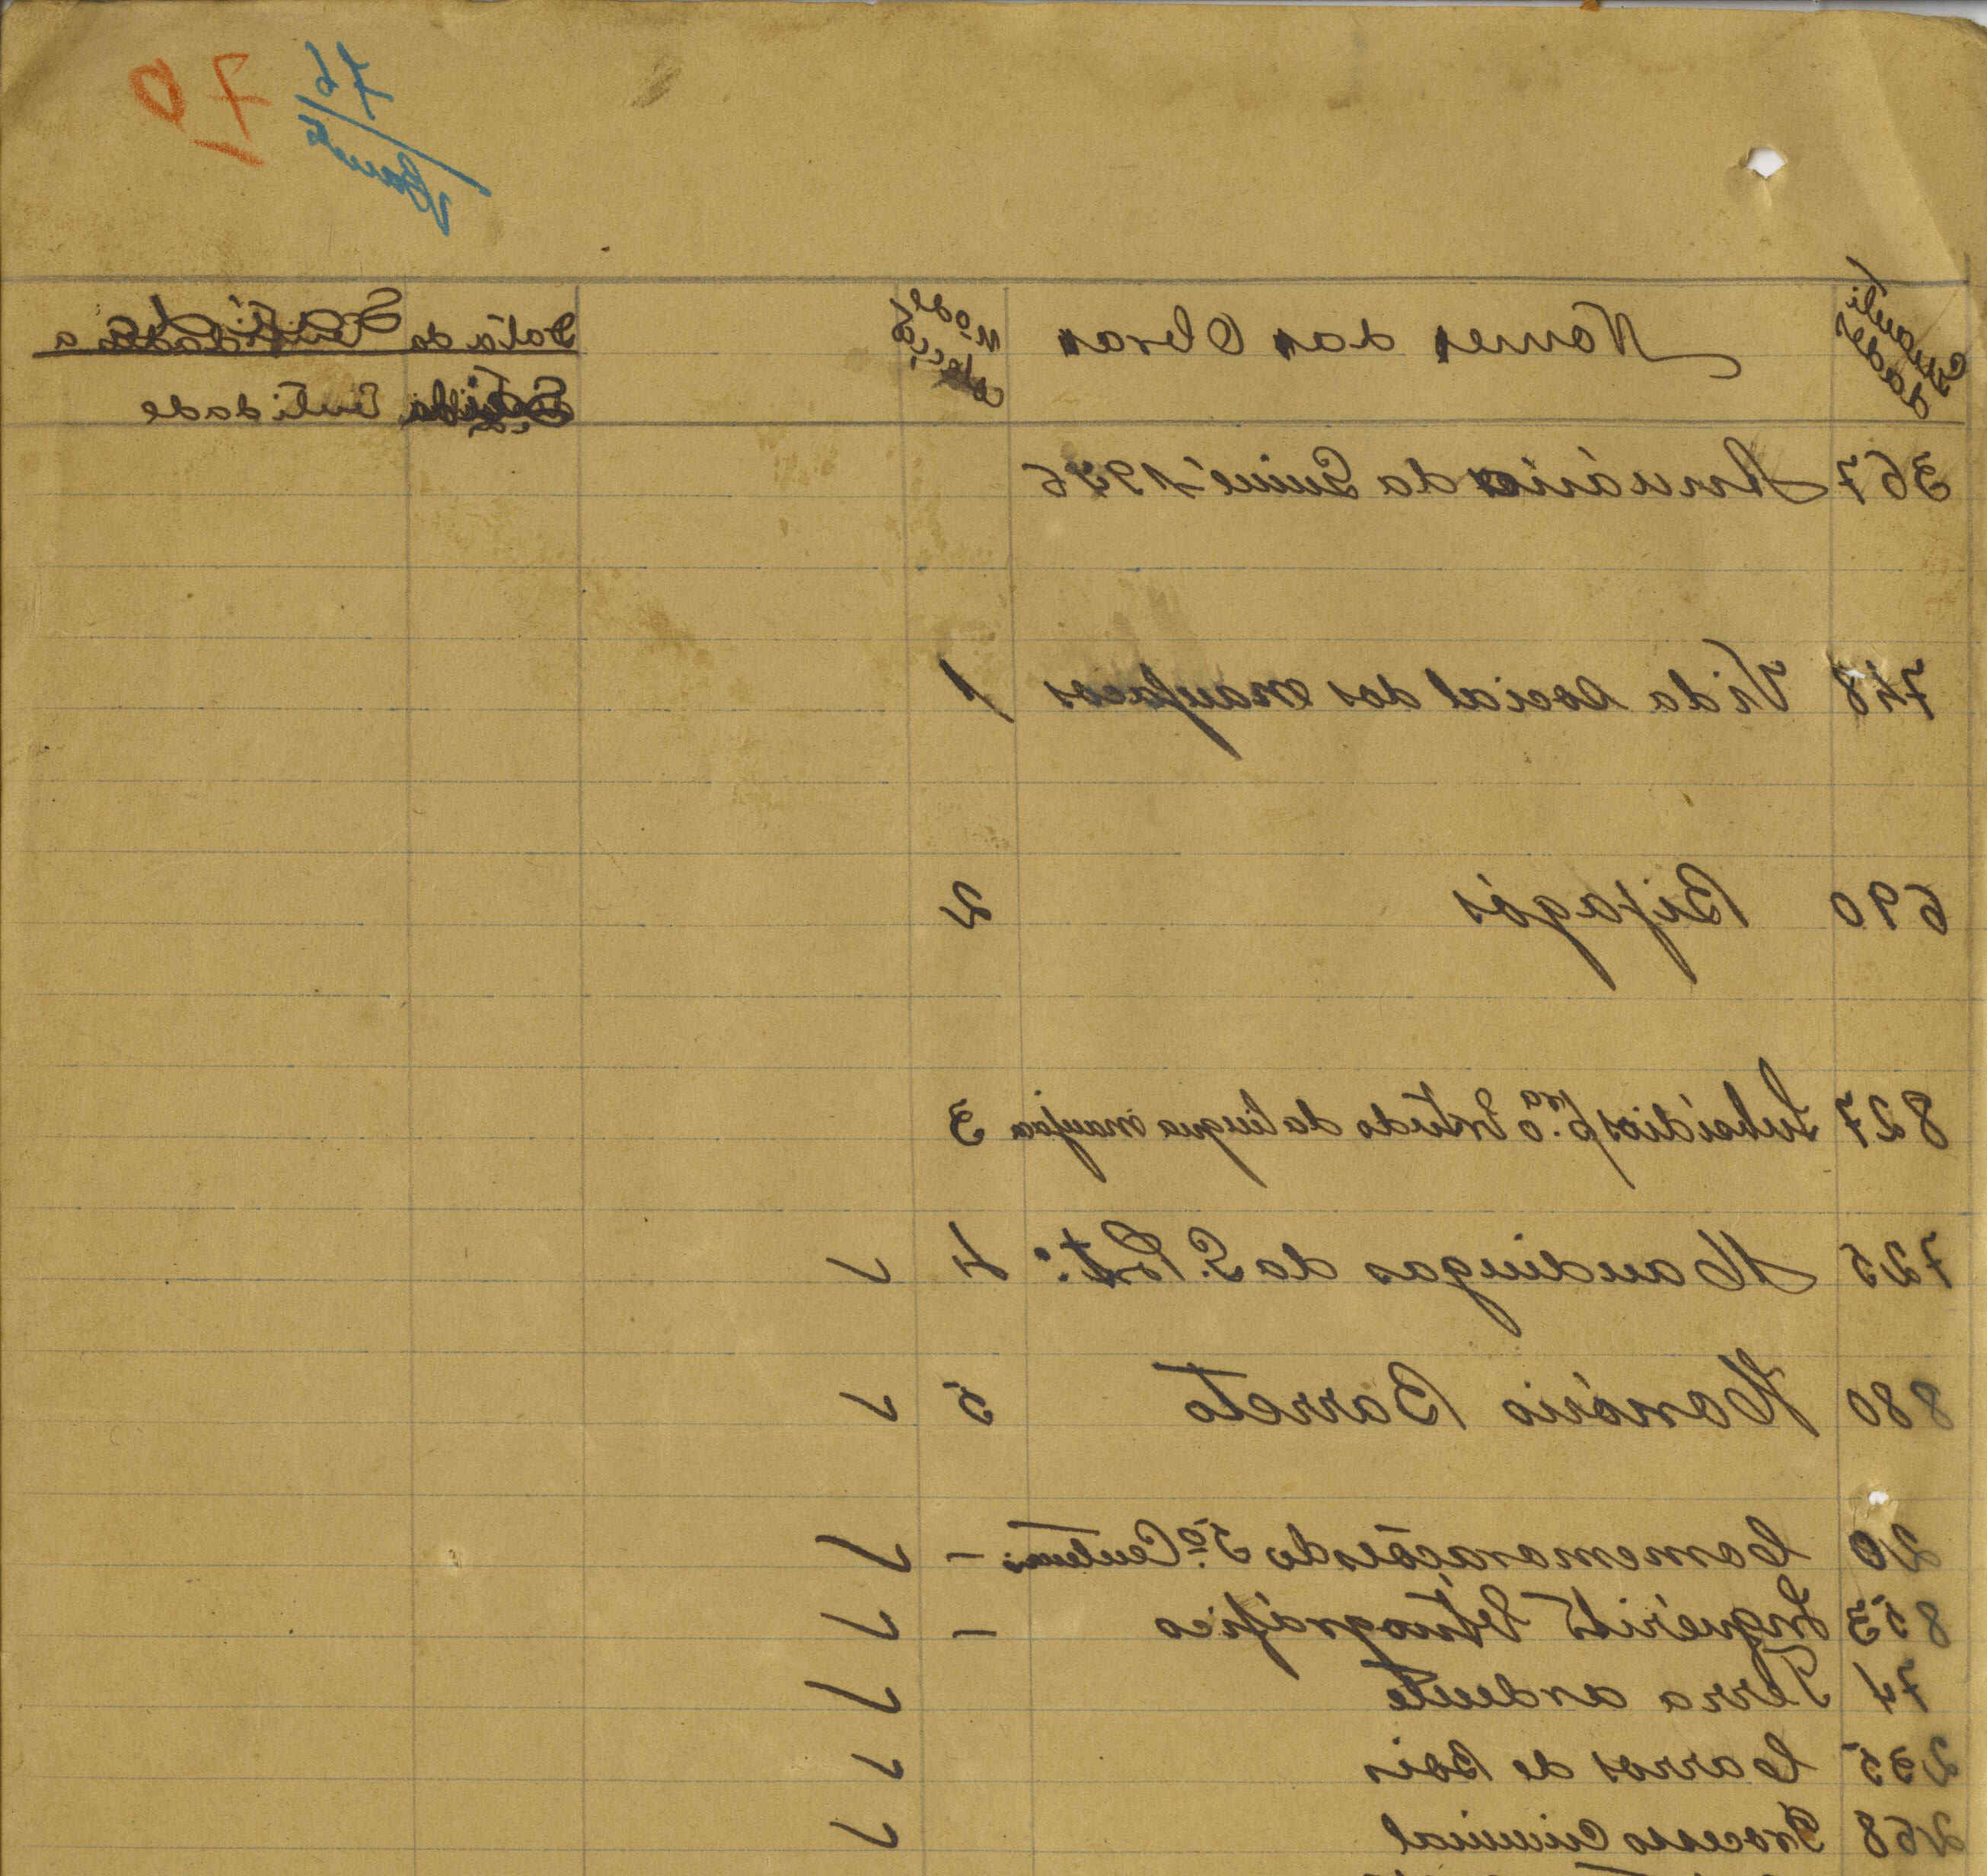 76
70
Quanti
dades
Nomes das Obras
Nº de
Data da
Entidade
367 Anuário da Guiné 1946
748 Vida Social dos manjacos 1
690 Bijagós 2
827 Subsídios pª o Estudo da lingua manjaca 3
725 Mandingas da G. Port: 4 v
880 Honório Barreto 5 v
20 Comemorações do 5º Centená: - v
853 Inquérito Etnográfico - v
74 Terra ardente v
235 Carros de Bois v
268 Processo Criminal v